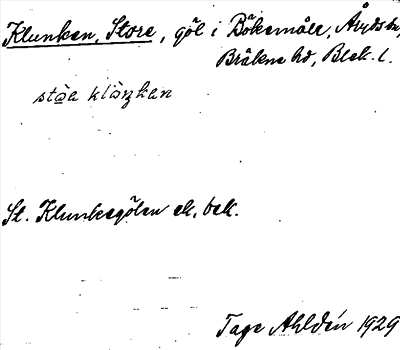 Klunken, Store, göl i Bökemåla, Åryds sn,
Bräkne hd, Blek. l.
stꜵa klɔŋkan
St. Klunkegölen ek. bek.
Tage Ahldén 1929